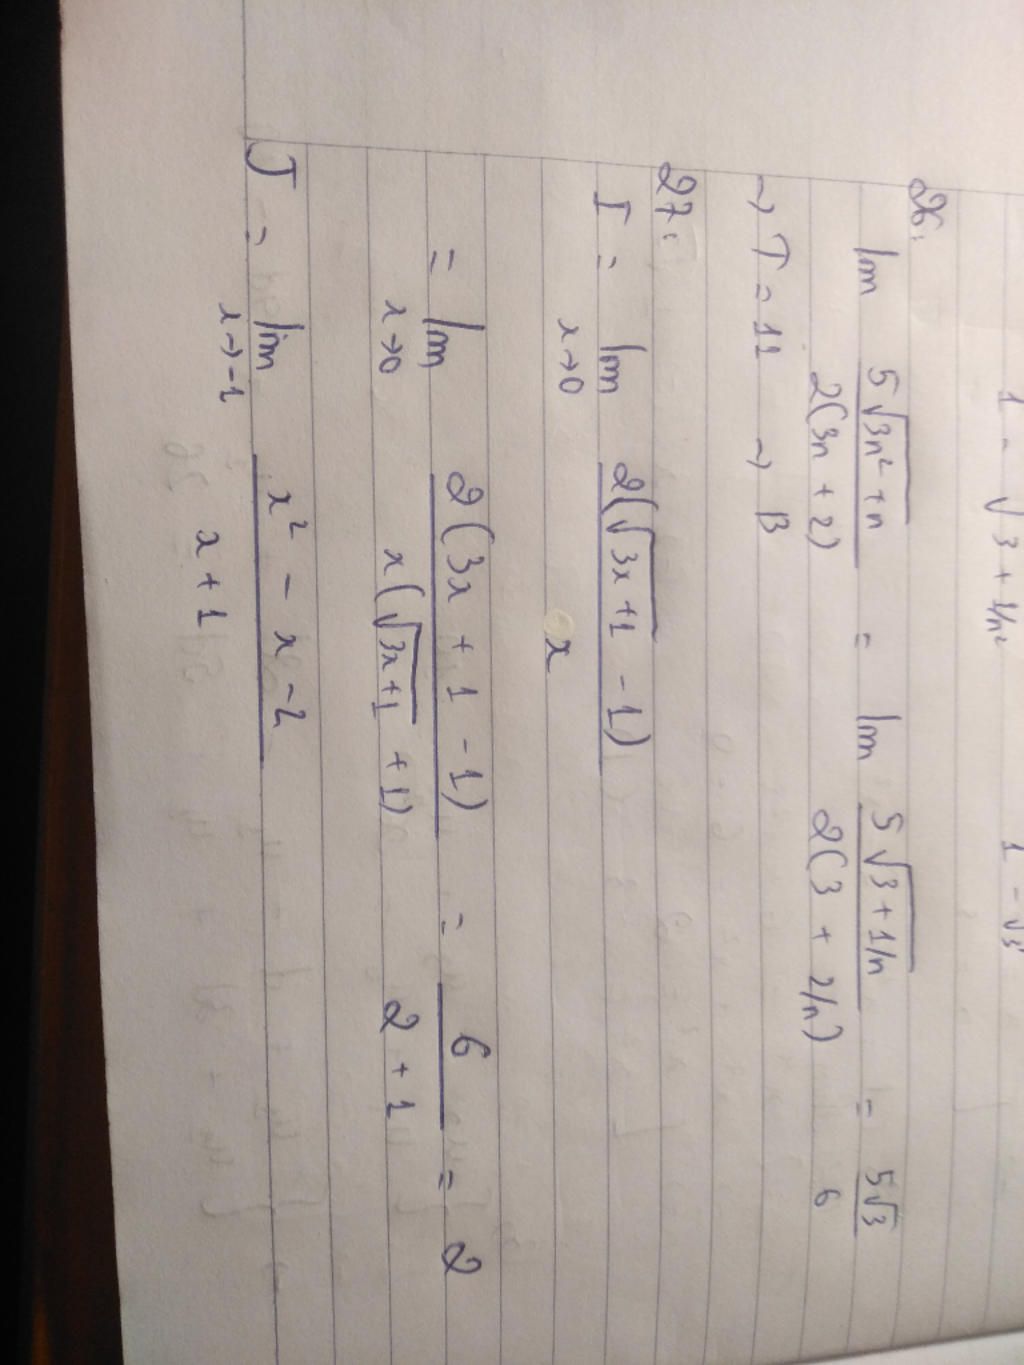 1 - √3 + 1/n² 1 - √3
26:
lim 5√3n² + n / 2(3n + 2) = lim 5√3 + 1/n / 2(3 + 2/n) = 5√3 / 6
→ T = 11 → B
27:
I = lim x→0 2(√3x+1 - 1) / x
= lim x→0 2(3x + 1 - 1) / x(√3x+1 + 1) = 6 / 2 + 1 = 2
J = lim x→-1 x² - x - 2 / x + 1